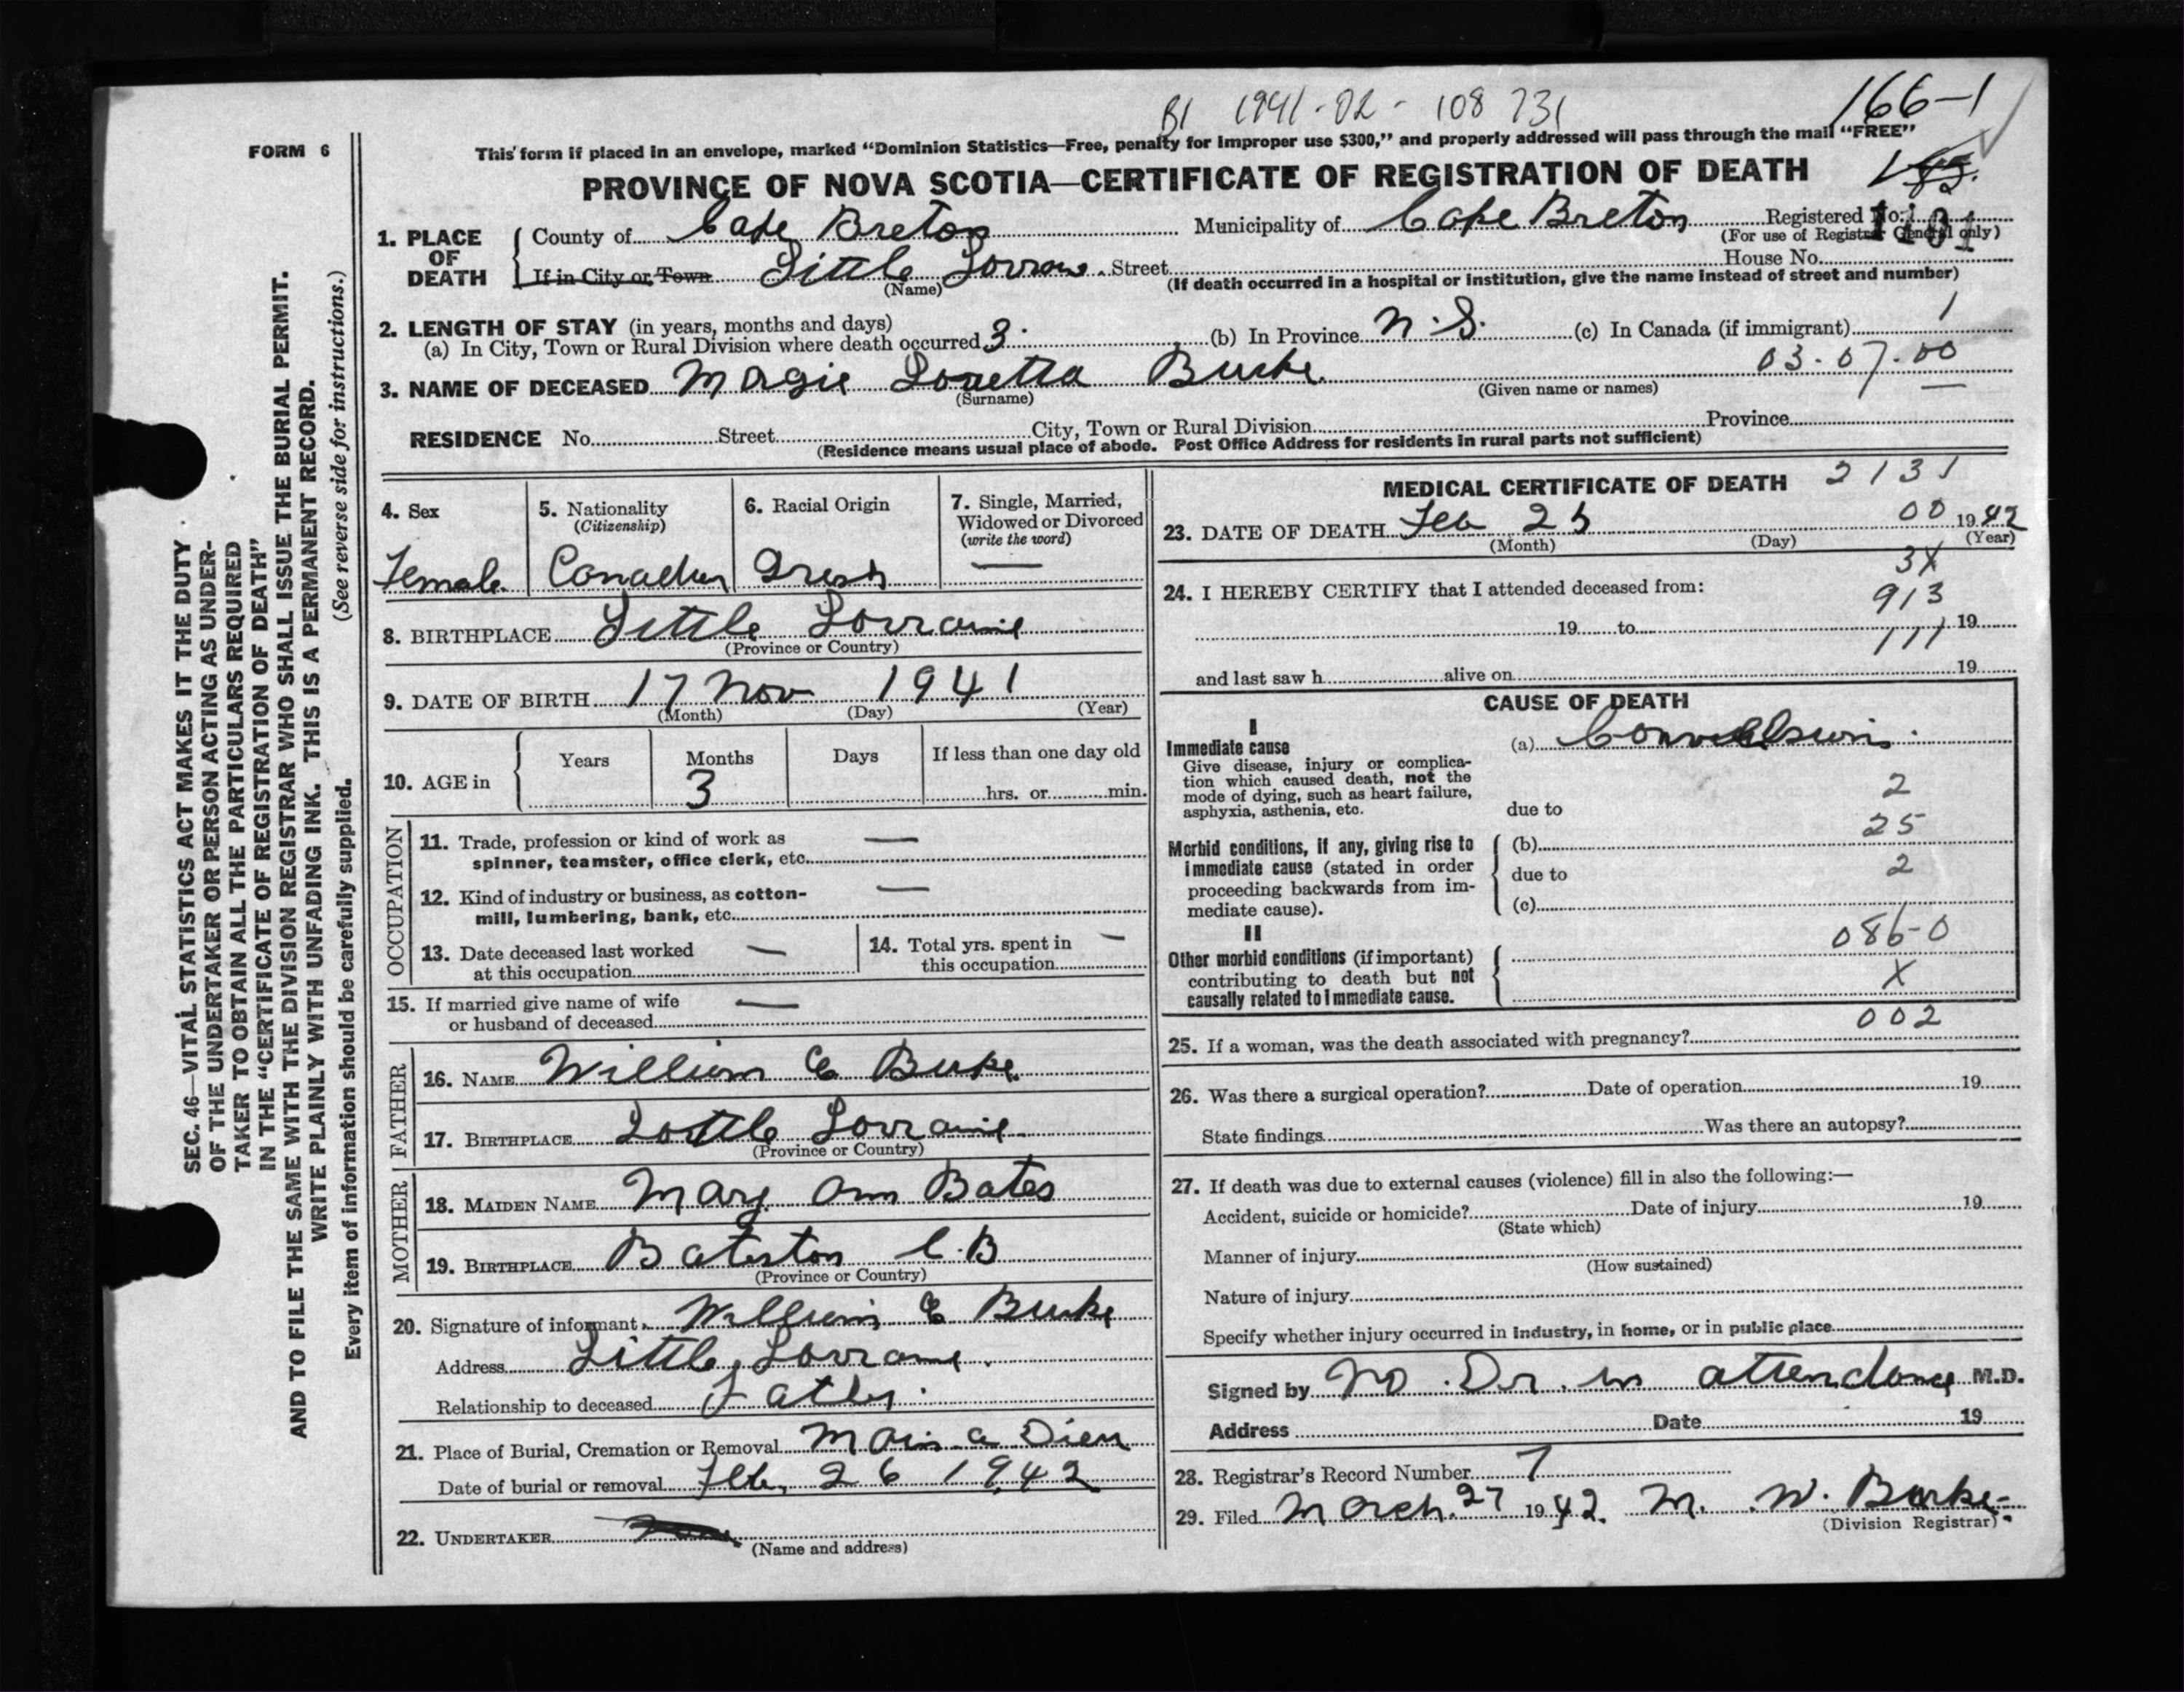 B1 1941-02-108 731
166-1
FORM 6
This form if placed in an envelope, marked “Dominion Statistics—Free, penalty for improper use $300,” and properly addressed will pass through the mail “FREE”
PROVINCE OF NOVA SCOTIA—CERTIFICATE OF REGISTRATION OF DEATH
1. PLACE OF DEATH
County of Cape Breton Municipality of Cape Breton Registered No.
(For use of Registrar General only)
If in City or Town Little Lorraine Street House No.
(Name) (If death occurred in a hospital or institution, give the name instead of street and number)
2. LENGTH OF STAY (in years, months and days)
(a) In City, Town or Rural Division where death occurred 3 (b) In Province N.S. (c) In Canada (if immigrant) 1
03-07-00
3. NAME OF DECEASED Magie Loretta Burke
(Surname) (Given name or names)
RESIDENCE No. Street City, Town or Rural Division Province
(Residence means usual place of abode. Post Office Address for residents in rural parts not sufficient)
4. Sex
Female
5. Nationality
(Citizenship)
Canadian
6. Racial Origin
Irish
7. Single, Married,
Widowed or Divorced
(write the word)
—
8. BIRTHPLACE Little Lorraine
(Province or Country)
9. DATE OF BIRTH 17 Nov 1941
(Month) (Day) (Year)
10. AGE in
Years Months Days If less than one day old
3 hrs. or min.
OCCUPATION
11. Trade, profession or kind of work as —
spinner, teamster, office clerk, etc.
12. Kind of industry or business, as cotton- —
mill, lumbering, bank, etc.
13. Date deceased last worked —
at this occupation
14. Total yrs. spent in —
this occupation
15. If married give name of wife —
or husband of deceased
FATHER
16. NAME William E Burke
17. BIRTHPLACE Little Lorraine
(Province or Country)
MOTHER
18. MAIDEN NAME Mary Ann Bates
19. BIRTHPLACE Bateston C.B
(Province or Country)
20. Signature of informant William E Burke
Address Little Lorraine
Relationship to deceased Father
21. Place of Burial, Cremation or Removal Main a Dieu
Date of burial or removal Feb, 26 1942
22. UNDERTAKER
(Name and address)
MEDICAL CERTIFICATE OF DEATH 2131
00
23. DATE OF DEATH Feb 25 1942
(Month) (Day) (Year)
3X
24. I HEREBY CERTIFY that I attended deceased from: 913
19 to 19
111
and last saw h alive on 19
CAUSE OF DEATH
I
Immediate cause
Give disease, injury or complica-
tion which caused death, not the
mode of dying, such as heart failure,
asphyxia, asthenia, etc.
(a) Convulsions
2
due to
25
Morbid conditions, if any, giving rise to
immediate cause (stated in order
proceeding backwards from im-
mediate cause).
(b)
due to 2
(c)
II
Other morbid conditions (if important)
contributing to death but not
causally related to immediate cause.
086-0
X
002
25. If a woman, was the death associated with pregnancy?
26. Was there a surgical operation? Date of operation 19
State findings Was there an autopsy?
27. If death was due to external causes (violence) fill in also the following:—
Accident, suicide or homicide? Date of injury 19
(State which)
Manner of injury
(How sustained)
Nature of injury
Specify whether injury occurred in industry, in home, or in public place
Signed by No. Dr. in attendance M.D.
Address Date 19
28. Registrar's Record Number 7
29. Filed March 27 1942. M. W. Burke
(Division Registrar)
SEC. 46—VITAL STATISTICS ACT MAKES IT THE DUTY
OF THE UNDERTAKER OR PERSON ACTING AS UNDER-
TAKER TO OBTAIN ALL THE PARTICULARS REQUIRED
IN THE “CERTIFICATE OF REGISTRATION OF DEATH”
AND TO FILE THE SAME WITH THE DIVISION REGISTRAR WHO SHALL ISSUE THE BURIAL PERMIT.
WRITE PLAINLY WITH UNFADING INK. THIS IS A PERMANENT RECORD.
Every item of information should be carefully supplied. (See reverse side for instructions.)